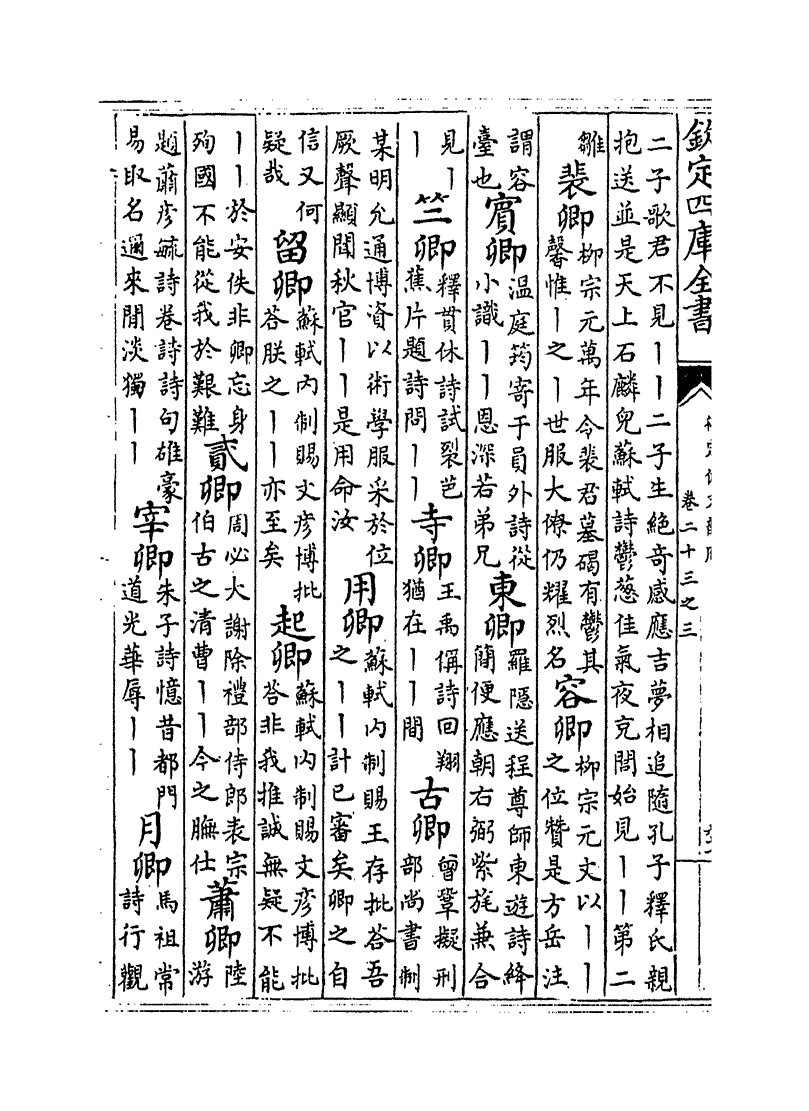 欽定四庫全書
卷二十三之三
二子歌君不見〡〡二子生絶奇感應吉夢相追隨孔子釋氏親
抱送並是天上石麟兒蘇軾詩鬱葱佳氣夜充閭始見〡〡第二
雛
裴卿
柳宗元萬年令裴君墓碣有鬱其
馨惟〡之〡世服大僚仍耀烈名
容卿
柳宗元文以〡〡
之位贊是方岳注
謂容
臺也
賓卿
温庭筠寄于員外詩從
小識〡〡恩深若弟兄
東卿
羅隱送程尊師東遊詩絳
簡便應朝右弼紫旄兼合
見〡
〡
竺卿
釋貫休詩試裂芭
蕉片題詩問〡〡
寺卿
王禹偁詩回翔
猶在〡〡間
古卿
曾鞏擬刑
部尚書制
某明允通博資以術學服采於位
厥聲顯聞秋官〡〡是用命汝
用卿
蘇軾内制賜王存批荅吾
之〡〡計已審矣卿之自
信又何
疑哉
留卿
蘇軾内制賜文彦博批
荅朕之〡〡亦至矣
起卿
蘇軾内制賜文彦博批
荅非我推誠無疑不能
〡〡於安佚非卿忘身
殉國不能從我於艱難
貳卿
周必大謝除禮部侍郎表宗
伯古之清曹〡〡今之膴仕
蕭卿
陸
游
題蕭彦毓詩卷詩詩句雄豪
易取名邇來閒淡獨〡〡
宰卿
朱子詩憶昔都門
道光華辱〡〡
月卿
馬祖常
詩行觀